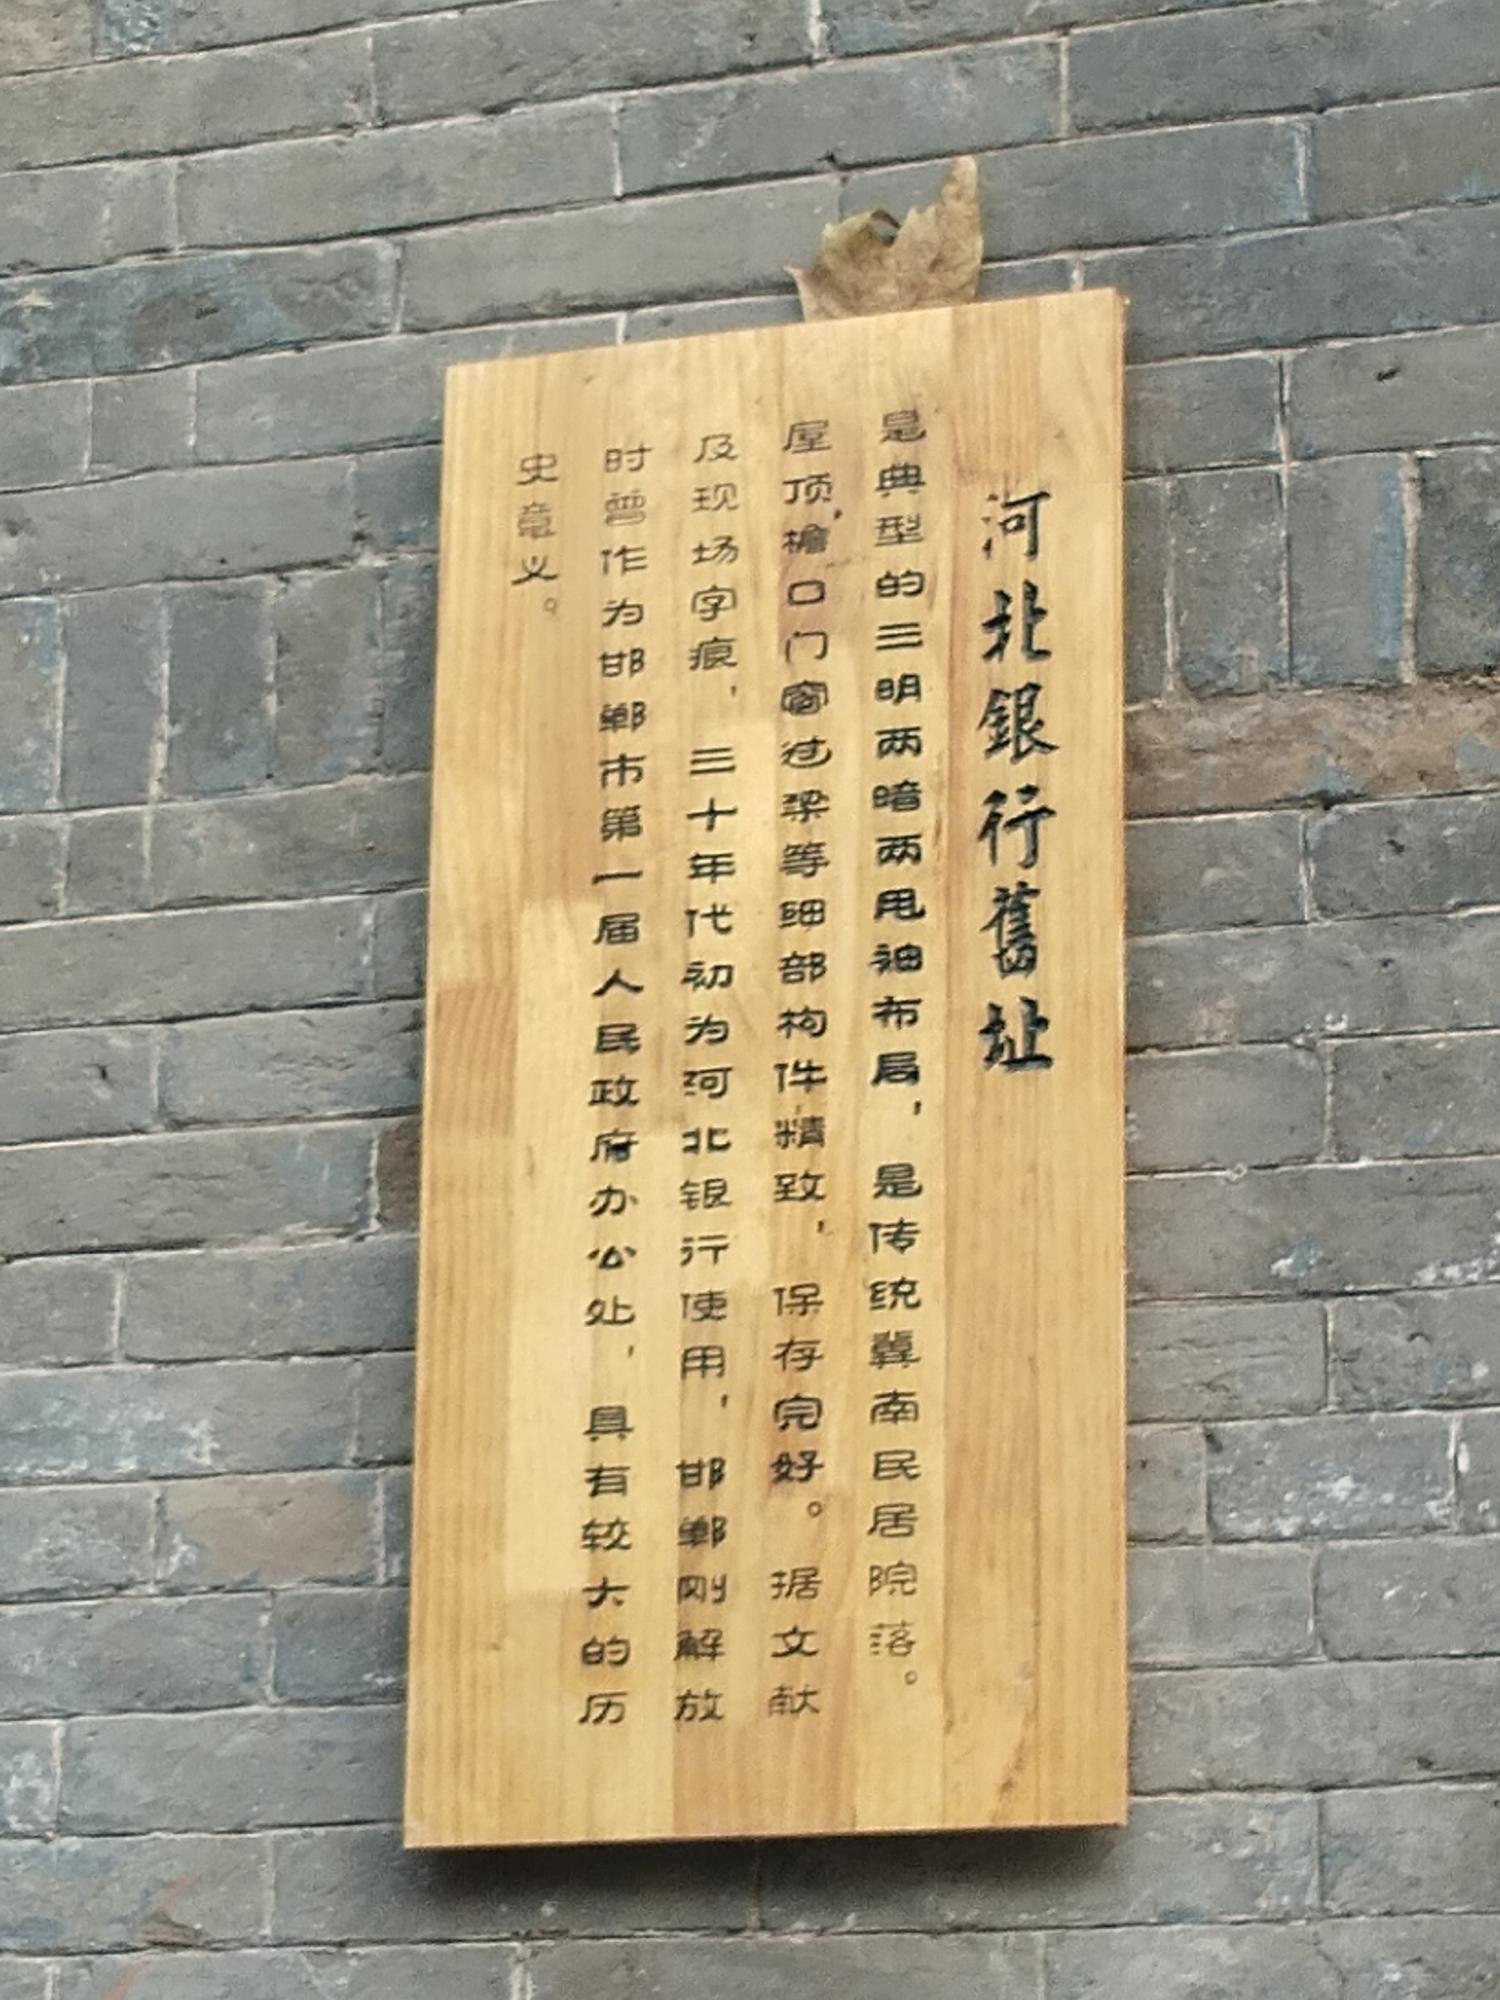 河北銀行舊址
是典型的三明两暗两甩袖布局，是传统冀南民居院落。
屋顶，檐口门窗过梁等细部构件精致，保存完好。据文献
及现场字痕，三十年代初为河北银行使用，邯郸刚解放
时曾作为邯郸市第一届人民政府办公处，具有较大的历
史意义。